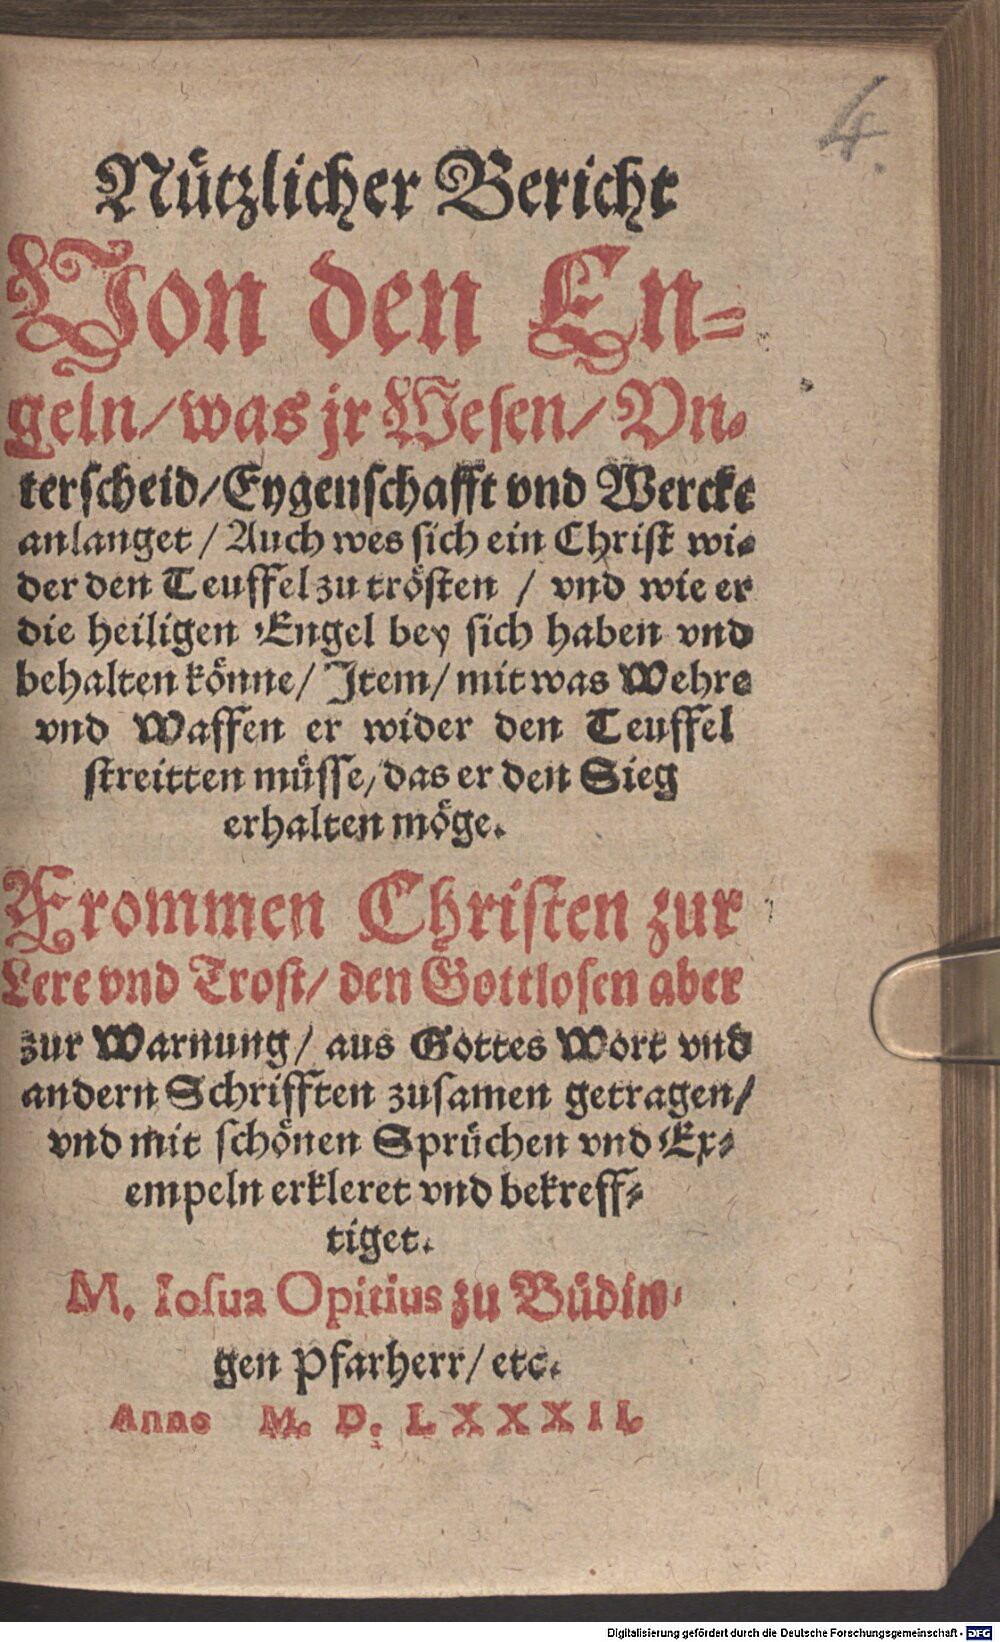 4.
Nützlicher Bericht
Von den En-
geln/ was jr Wesen/ Vn-
terscheid/ Eygenschafft vnd Wercke
anlanget / Auch wes sich ein Christ wi-
der den Teuffel zu trösten / vnd wie er
die heiligen Engel bey sich haben vnd
behalten könne/ Item/ mit was Wehre
vnd Waffen er wider den Teuffel
streitten müsse/ das er den Sieg
erhalten möge.
Frommen Christen zur
Lere vnd Trost/ den Gottlosen aber
zur Warnung/ aus Gottes Wort vnd
andern Schrifften zusamen getragen/
vnd mit schönen Sprüchen vnd Ex-
empeln erkleret vnd bekreff-
tiget.
M. Iosua Opitius zu Büdin-
gen Pfarherr/ etc.
Anno M. D. LXXXII.
Digitalisierung gefördert durch die Deutsche Forschungsgemeinschaft - DFG